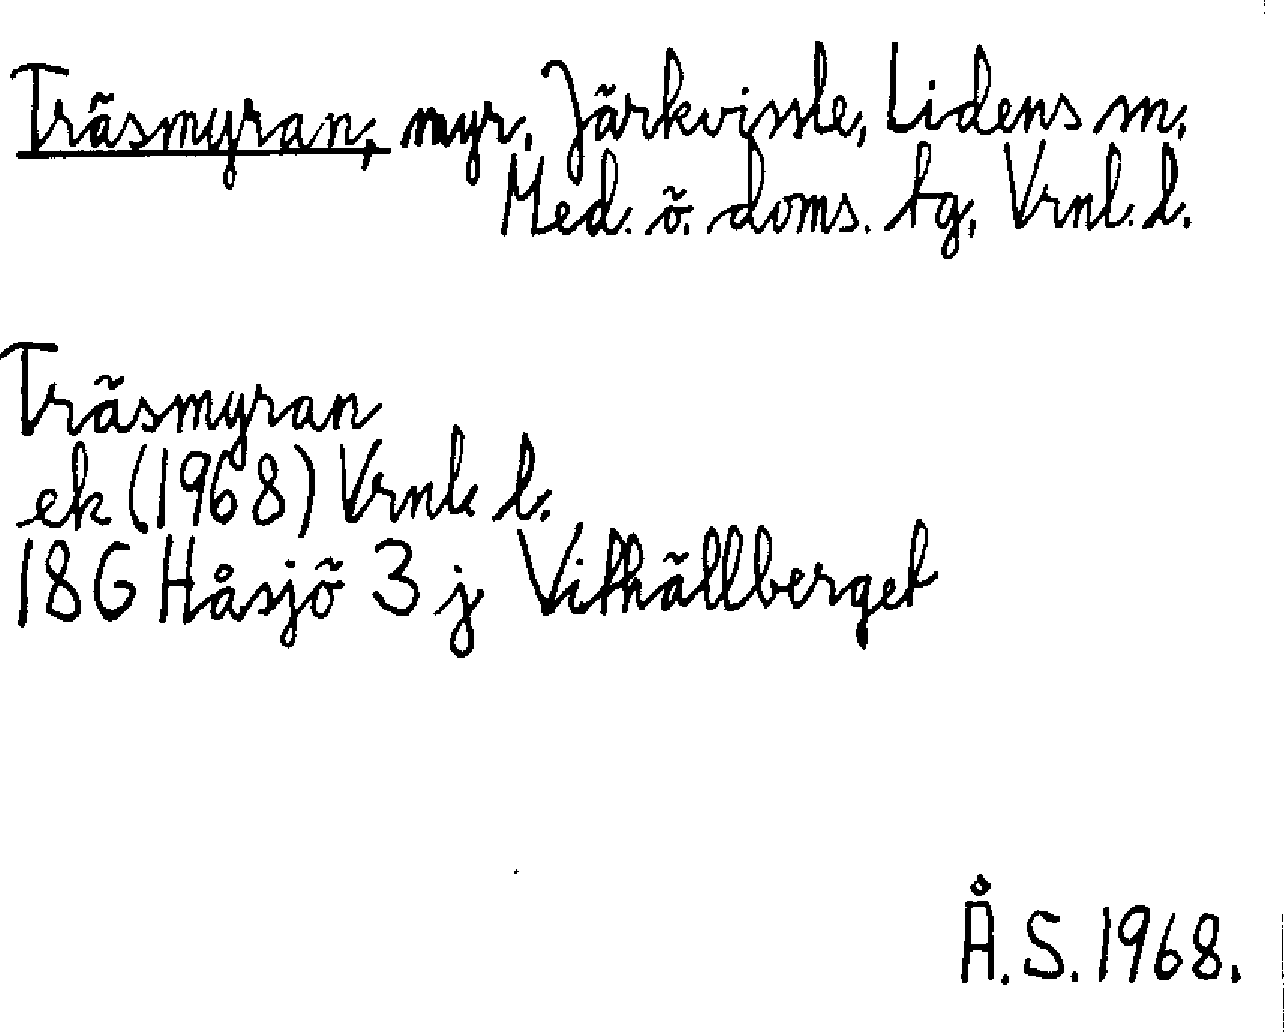 Träsmyran, myr, Järkvissle, Lidens sn,
Med. ö. doms. tg, Vrnl. l.
Träsmyran
ek (1968) Vrnl. l.
18G Håsjö 3 j Vithällberget
Å.S. 1968.